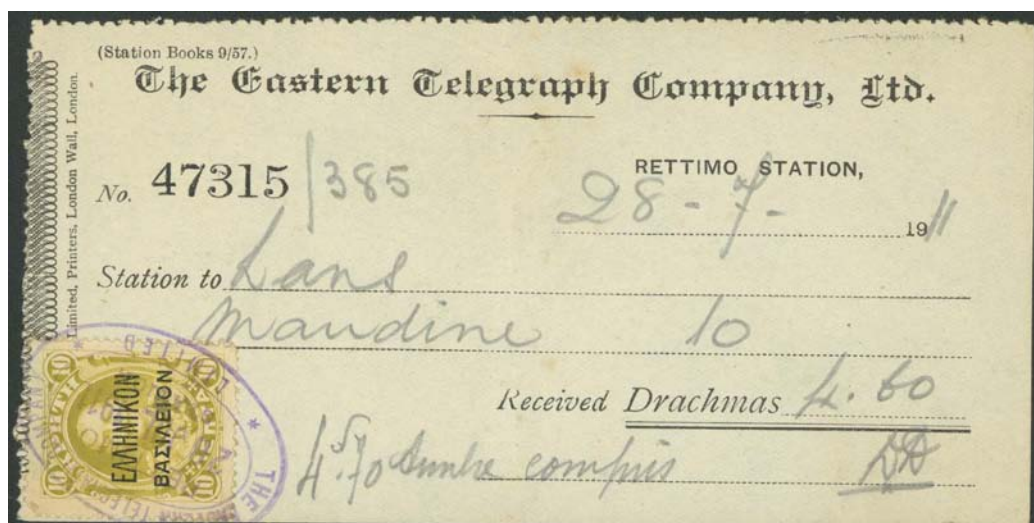 (Station Books 9/57.)
The Eastern Telegraph Company, Ltd.
Limited, Printers, London Wall, London.
No. 47315 / 385
RETTIMO STATION,
28 - 7 - 1911
Station to
10
Received Drachmas 4.60
4.70 compris
10 10
ΕΛΛΗΝΙΚΟΝ
ΒΑΣΙΛΕΙΟΝ
10 10
THE
LIMITED